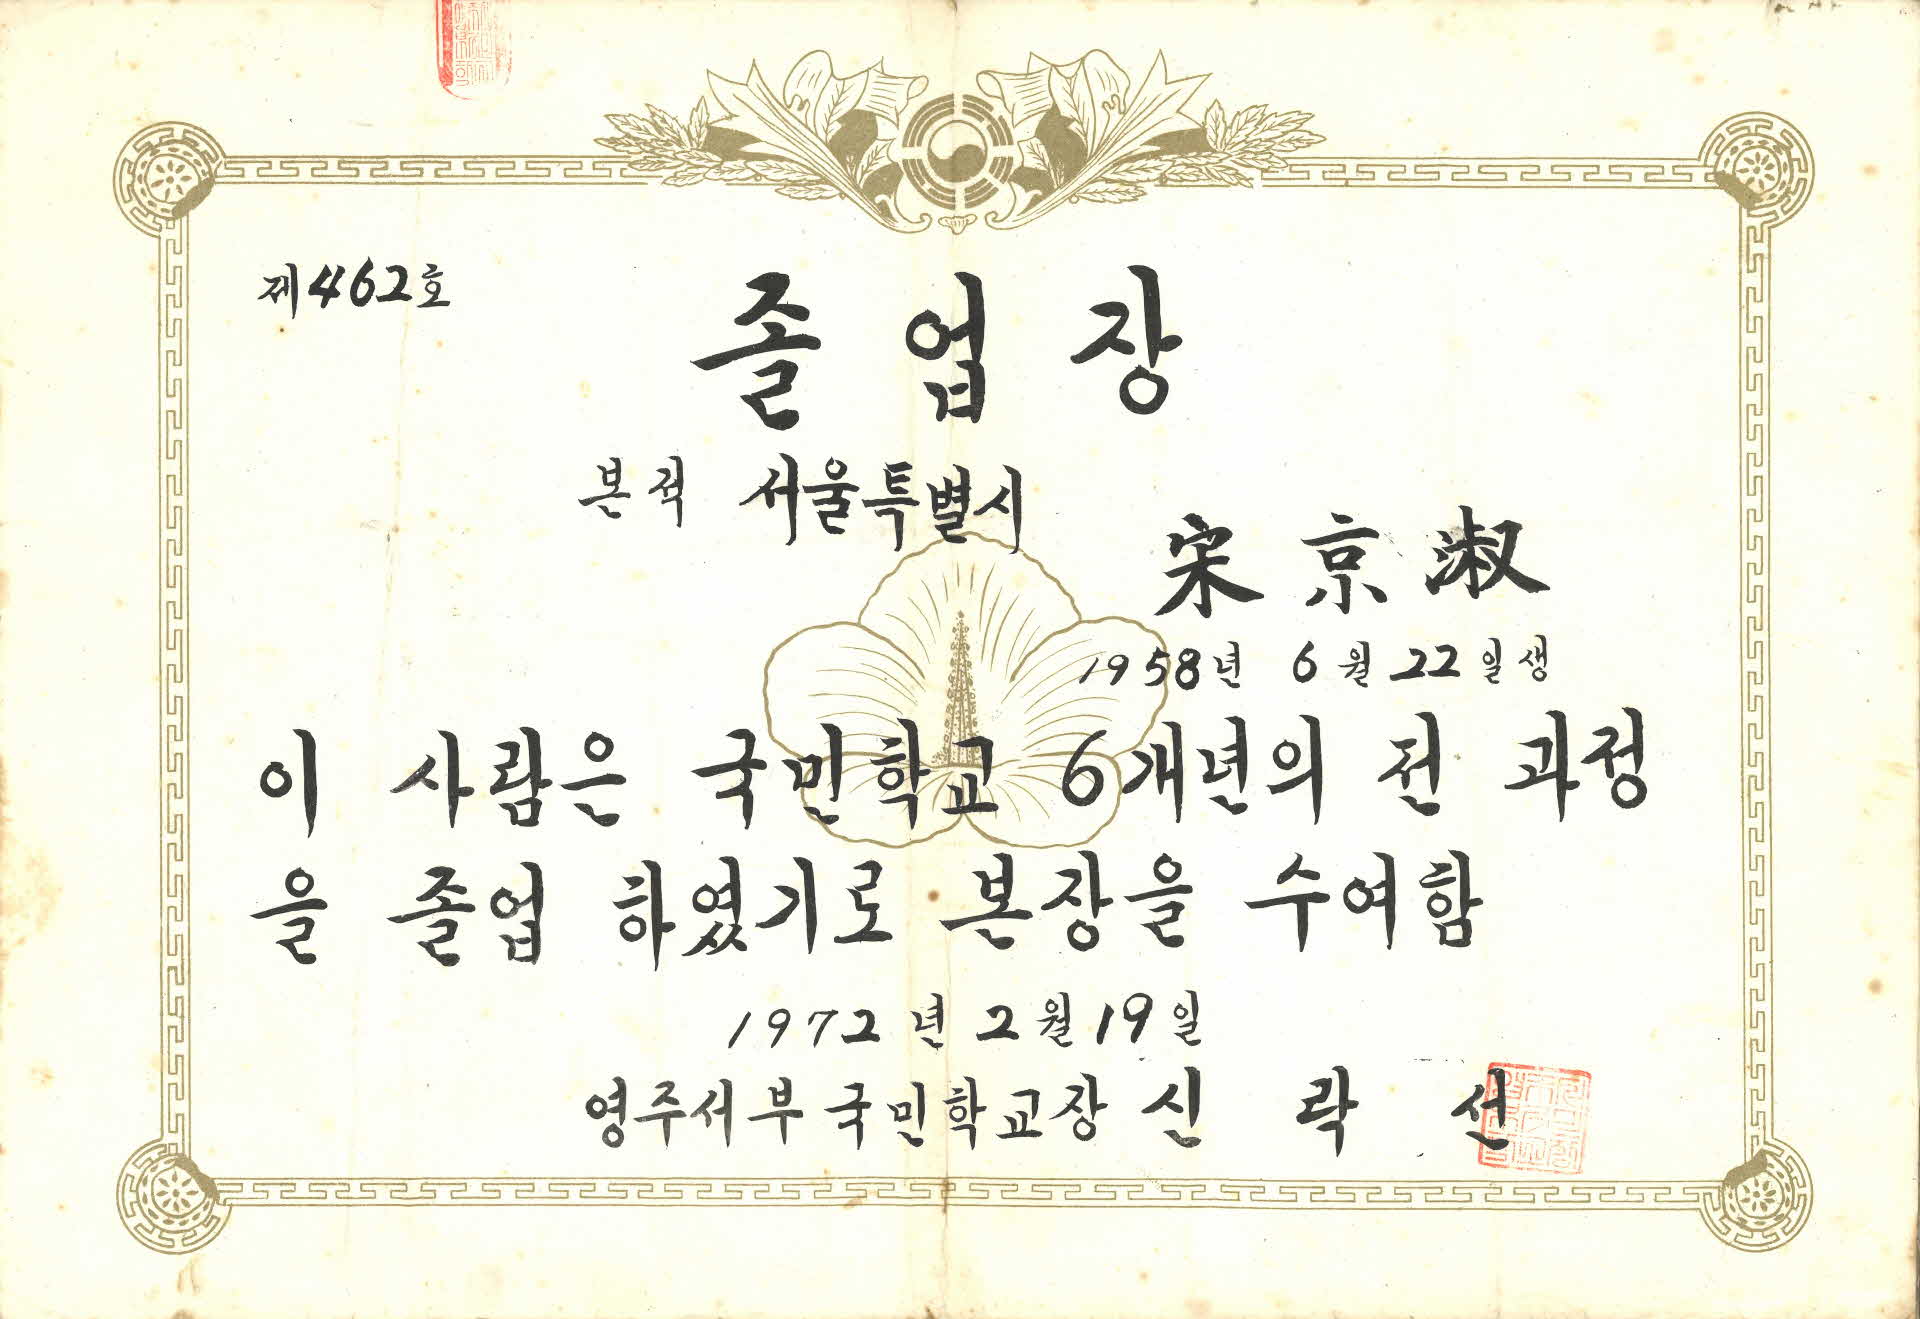 제462호
졸업장
본적 서울특별시
宋京淑
1958년 6월 22일생
이 사람은 국민학교 6개년의 전 과정
을 졸업 하였기로 본장을 수여함
1972년 2월 19일
영주서부국민학교장 신락선